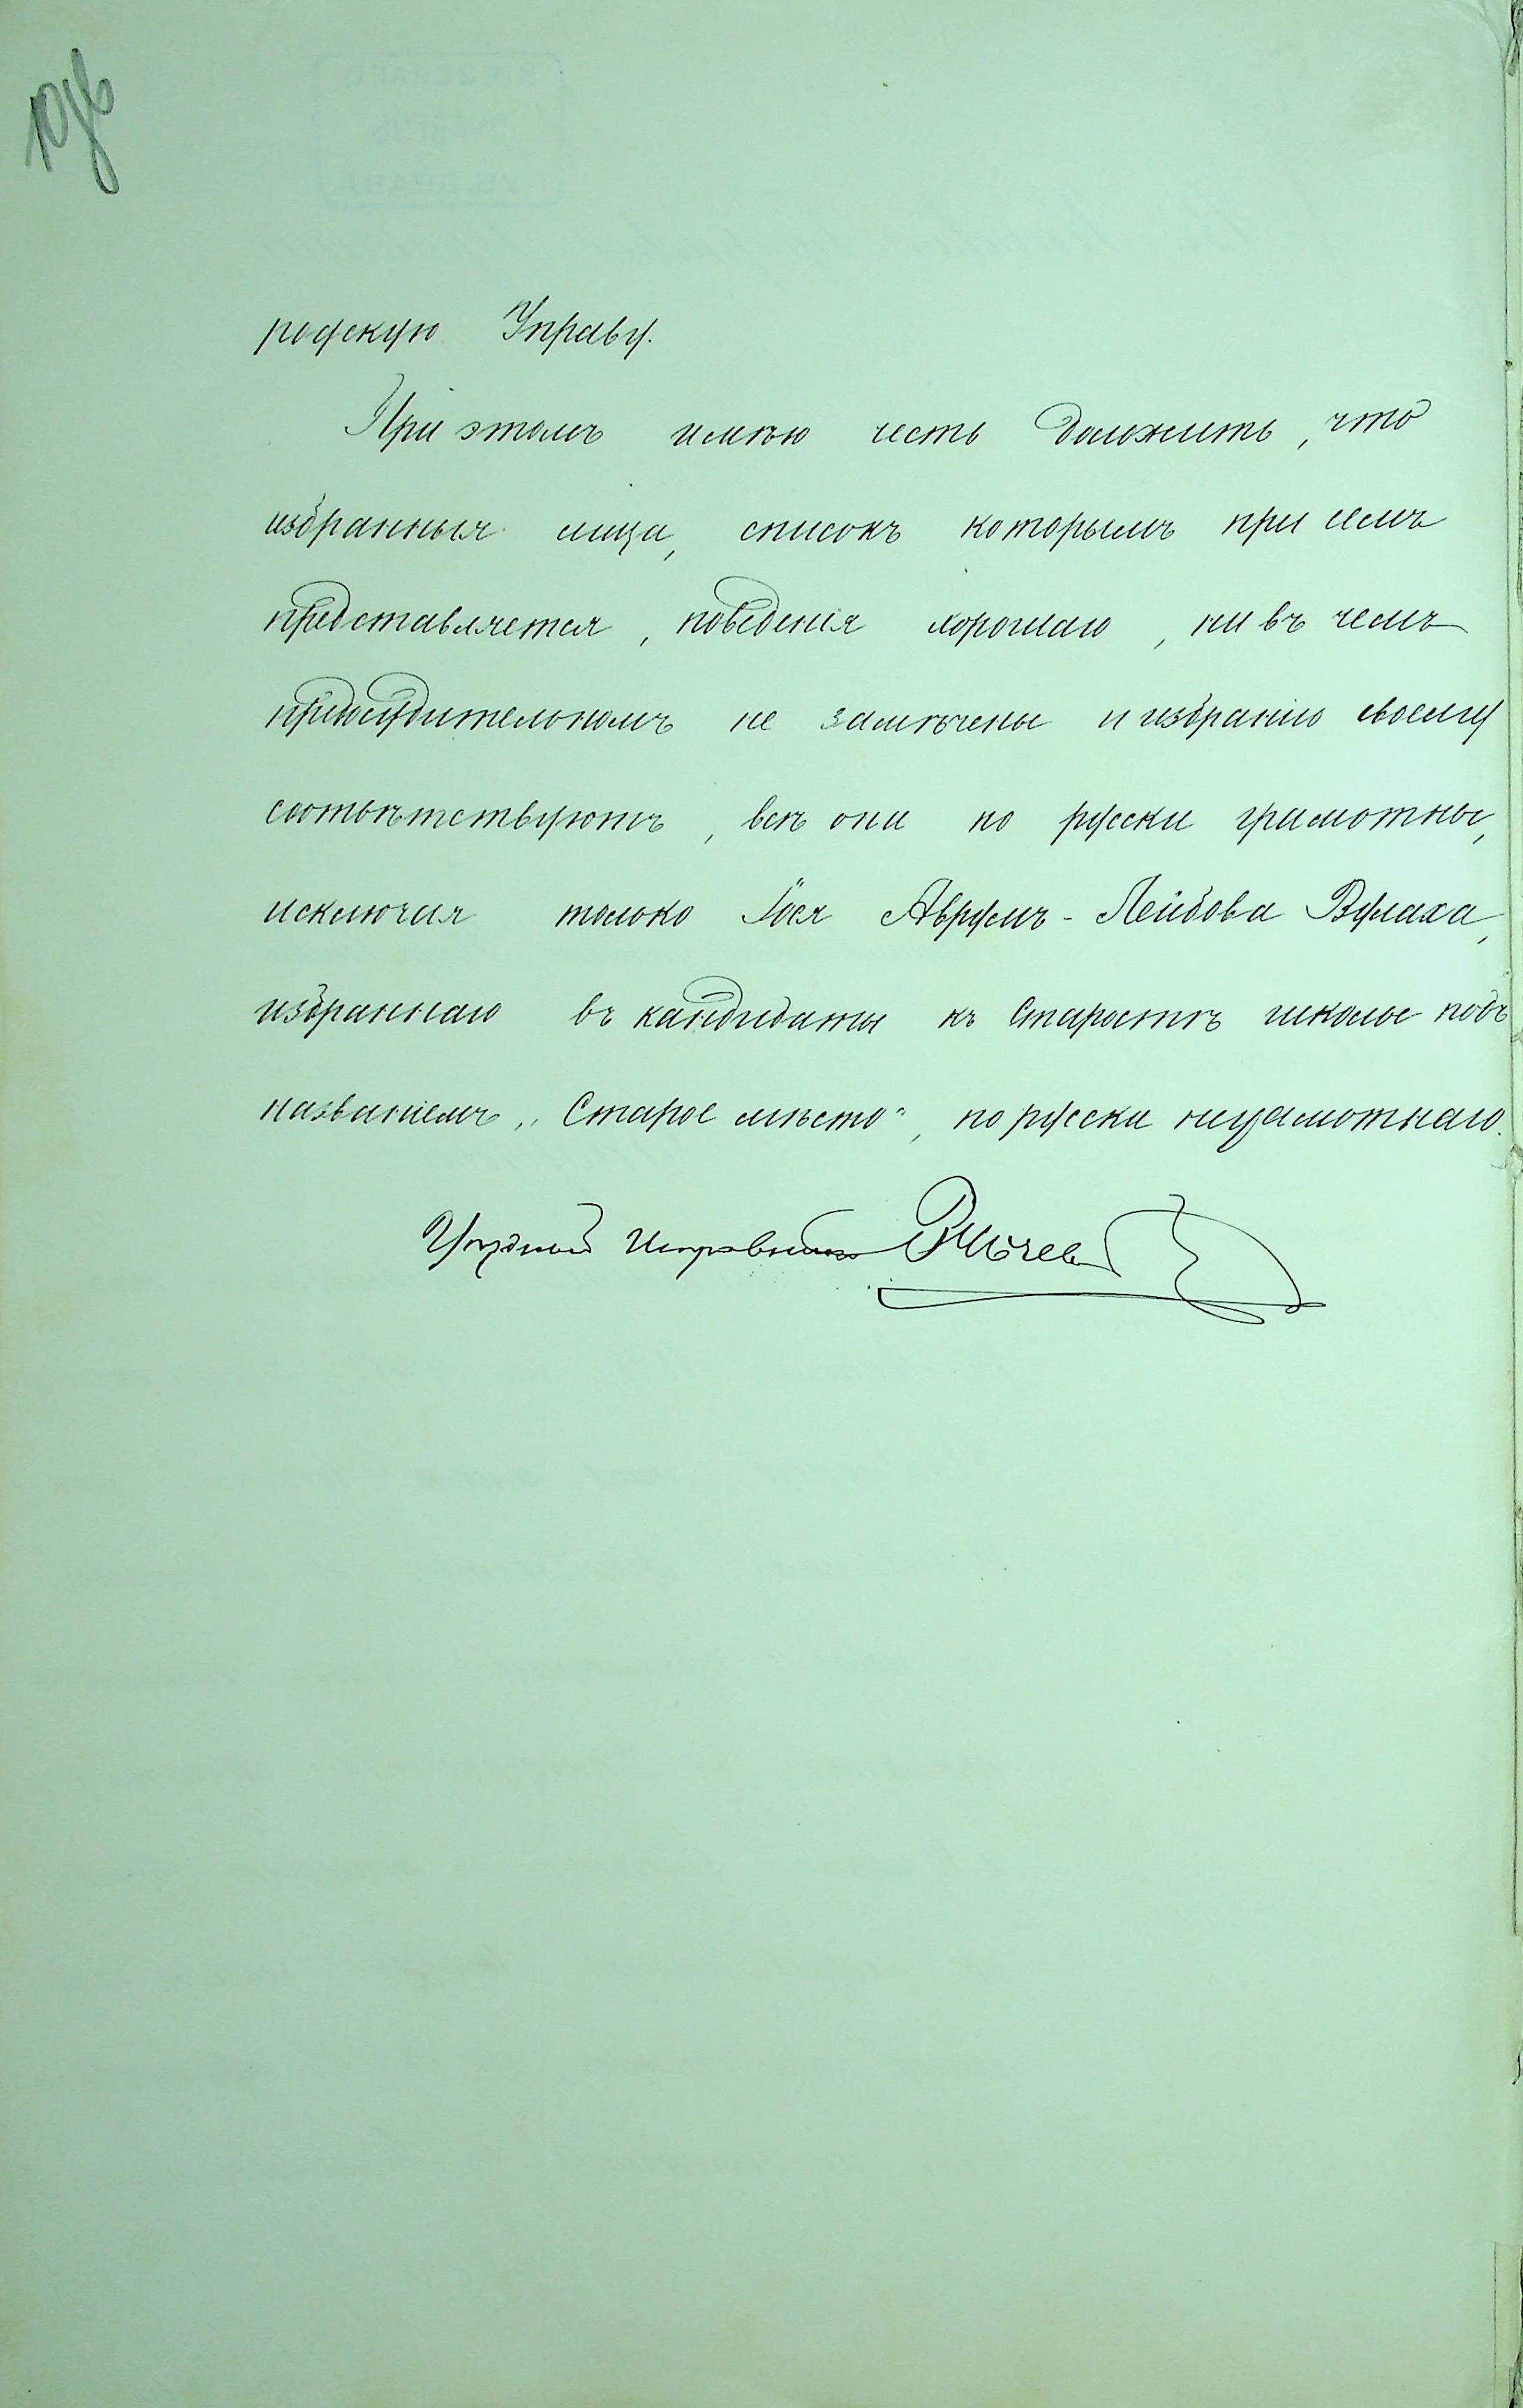 родскую Управу.
При этомъ имѣю честь доложить, что
избранныя лица, списокъ которымъ при семъ
представляется, поведенія хорошаго, ни въ чемъ
предосудительномъ не замѣчены и избранію своему
соотвѣтствуютъ, всѣ они по русски грамотны,
исключая только Іося Аврумъ-Лейбова Вулаха,
избраннаго въ кандидаты къ Старостѣ школы подъ
названіемъ „Старое мѣсто", по русски неграмотнаго.
Уѣздный Исправникъ